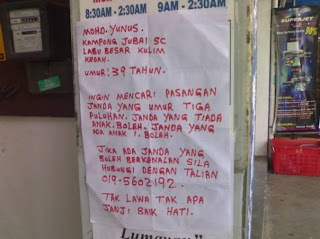 8:30AM - 2:30AM 9AM - 2:30AM
MOHD. YUNUS.
KAMPONG JUBAI SC
LABU BESAR KULIM
KEDAH.
UMUR: 39 TAHUN.
INGIN MENCARI PASANGAN
JANDA YANG UMUR TIGA
PULUHAN. JANDA YANG TIADA
ANAK. BOLEH. JANDA YANG
ADA ANAK 1. BOLEH.
JIKA ADA JANDA YANG
BOLEH BERKENALAN SILA
HUBUNGI DENGAN TALIAN
019-5602192.
TAK LAWA TAK APA
JANJI BAIK HATI.
SUPERJET